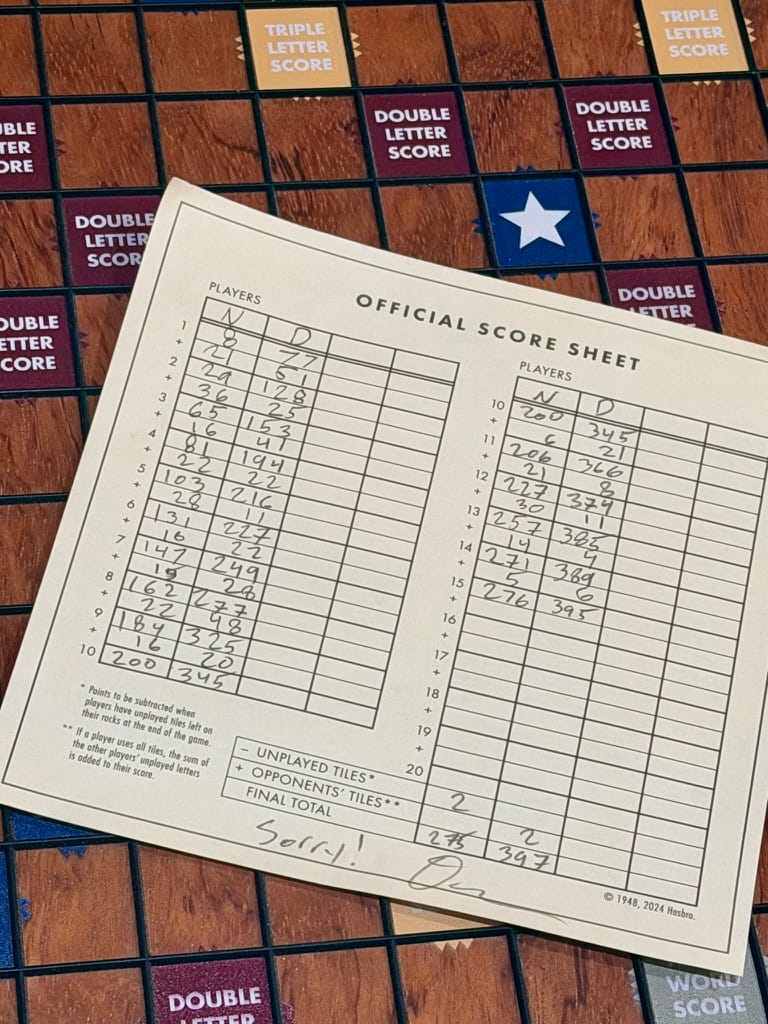 TRIPLE LETTER SCORE
TRIPLE LETTER SCORE
DOUBLE LETTER SCORE
DOUBLE LETTER SCORE
DOUBLE LETTER SCORE
DOUBLE LETTER SCORE
DOUBLE LETTER
OUBLE ETTER CORE
OFFICIAL SCORE SHEET
PLAYERS
N D
1 8 77
+ 21 51
2 29 128
+ 36 25
3 65 153
+ 16 41
4 81 194
+ 22 22
5 103 216
+ 28 11
6 131 227
+ 16 22
7 147 249
+ 15 28
8 162 277
+ 22 48
9 184 325
+ 16 20
10 200 345
PLAYERS
N D
10 200 345
+ 6 21
11 206 366
+ 21 8
12 227 374
+ 30 11
13 257 385
+ 14 4
14 271 389
+ 5 6
15 276 395
+
16
+
17
+
18
+
19
+
20
* Points to be subtracted when
players have unplayed tiles left on
their racks at the end of the game.
** If a player uses all tiles, the sum of
the other players' unplayed letters
is added to their score.
– UNPLAYED TILES* 2
+ OPPONENTS' TILES** 2
FINAL TOTAL 275 397
Sorry!
© 1948, 2024 Hasbro.
DOUBLE LETTER
WORD SCORE